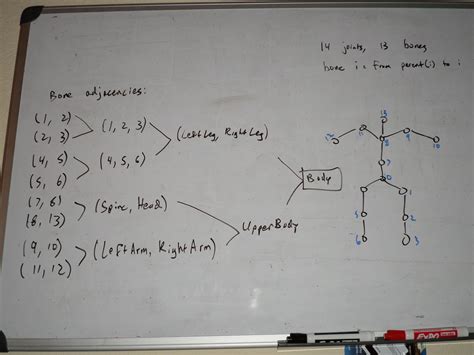 14 joints, 13 bones
bone i = from parent(i) to i
Bone adjacencies:
(1, 2)
(2, 3)
(1, 2, 3)
(4, 5)
(5, 6)
(4, 5, 6)
(LeftLeg, RightLeg)
(7, 8)
(8, 13)
(Spine, Head)
(9, 10)
(11, 12)
(LeftArm, RightArm)
UpperBody
Body
13
12
11
8
9
10
7
0
4
1
5
2
6
3
EXPO